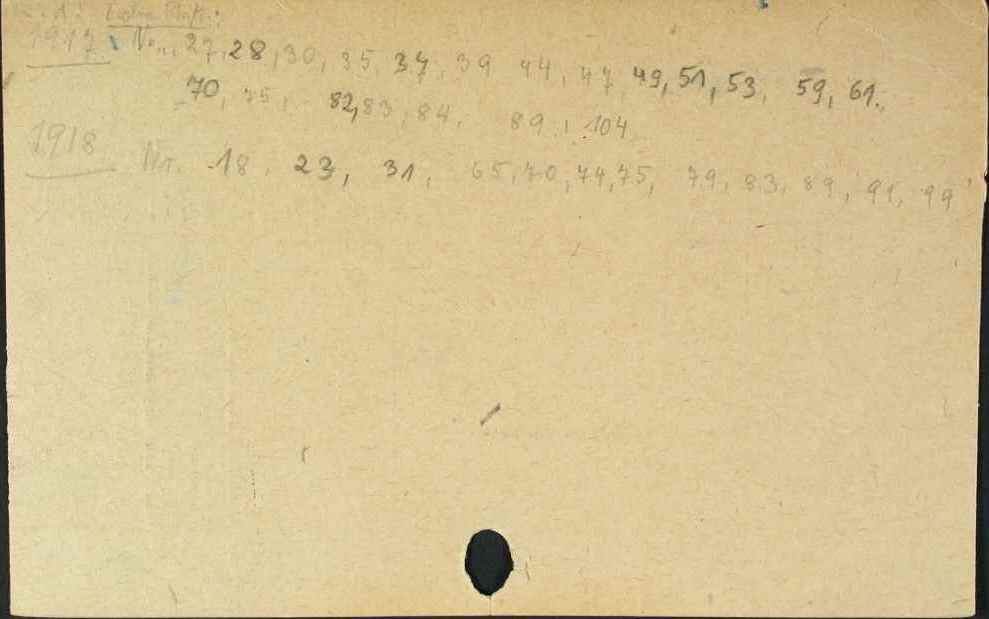 1917 Nrn. 27, 28, 30, 35, 37, 39 44, 47, 49, 51, 53, 59, 61.,
70, 75, 82, 83, 84, 89, 104
1918 Nr. 18, 23, 31, 65, 70, 74, 75, 79, 83, 89, 91, 99